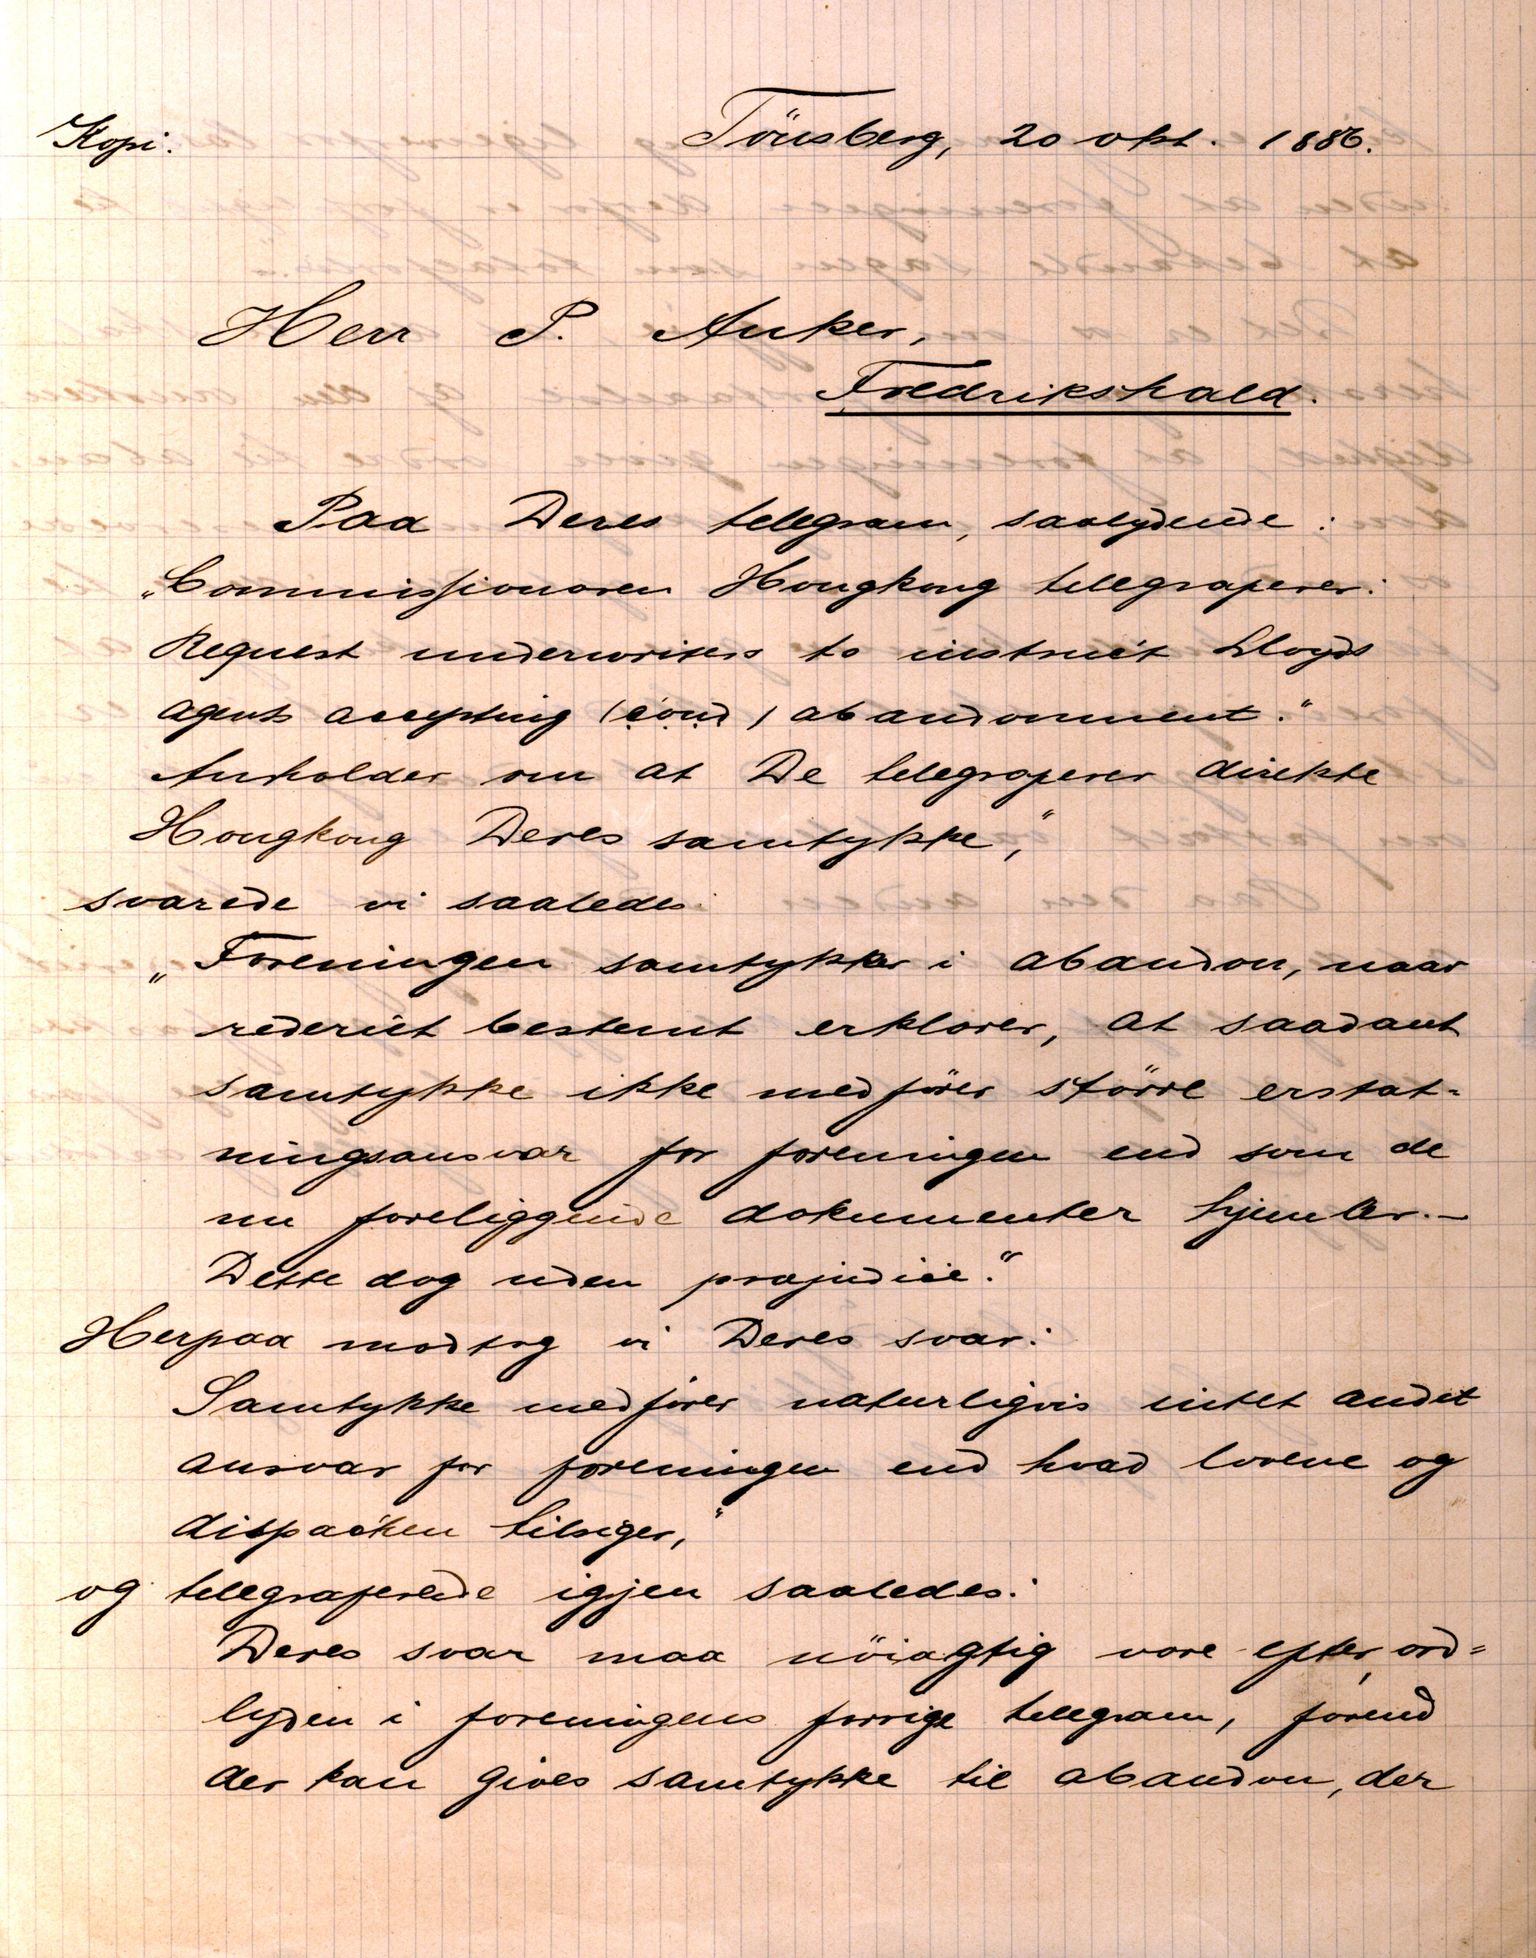 Kopi. Tönsberg, 20 okt. 1886.
Herr P. Anker,
Fredrikshald.
Paa Deres telegram, saalydende:
„Commissionæren Hongkong telegraferer:
Request underwriters to instruct Lloyds
agents accepting (cond) abandonment."
Anholder om at De telegraferer direkte
Hongkong Deres samtykke,"
svarede vi saaledes:
„Foreningen samtykker i abandon, naar
rederiet bestemt erklærer, at saadant
samtykke ikke medfører större erstat=
ningsansvar for foreningen end som de
nu foreliggende dokumenter hjemler.—
Dette dog uden præjudice."
Herpaa modtog vi Deres svar:
Samtykke medfører naturligvis intet andet
ansvar for foreningen end hvad lovene og
dispachen tilsiger,"
og telegraferede igjen saaledes:
Deres svar maa nöiagtig være efter ord=
lyden i foreningens forrige telegram, förend
der kan gives samtykke til abandon, der